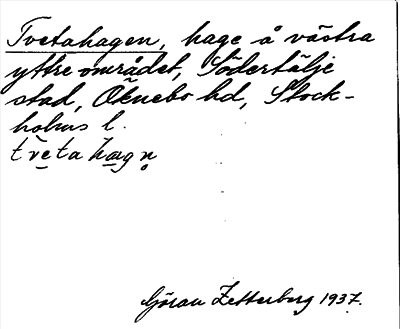 Tvetahagen, hage å västra
yttre området, Södertälje
stad, Öknebo hd, Stock-
holms l.
tve̱ta ha̱gn̥
Göran Zetterberg 1937.